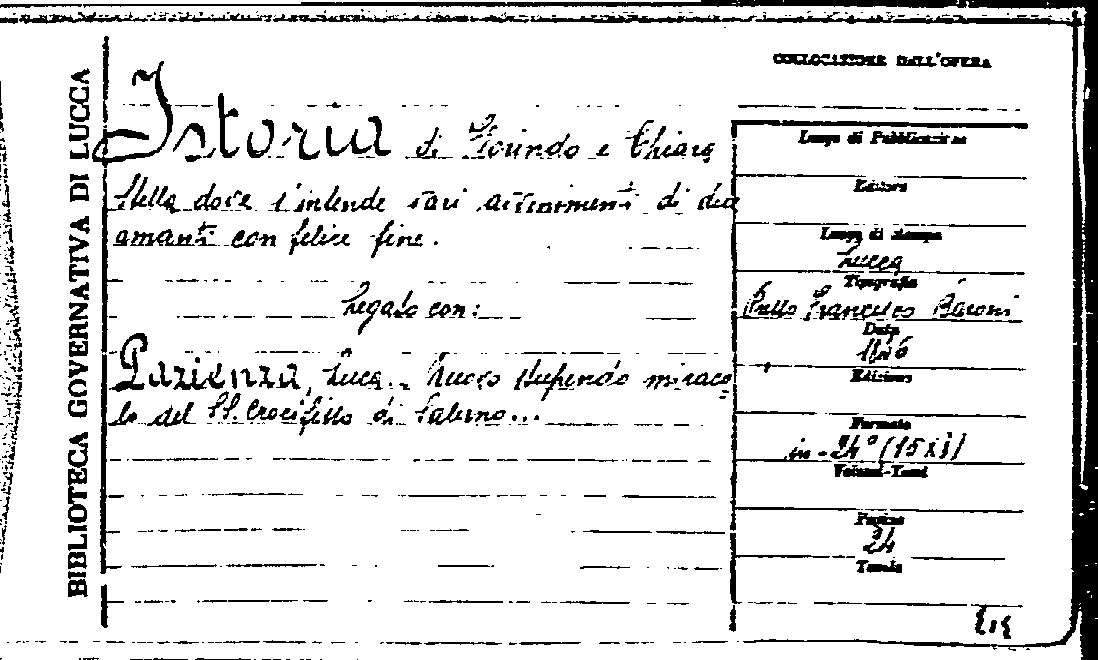 BIBLIOTECA GOVERNATIVA DI LUCCA
Istoria di Florindo e Chiara
Stella dove s'intende vari avvenimenti di due
amanti con felice fine.
Legato con:
Pazienza, Luca. Nuovo stupendo miraco
lo del SS. Crocifisso di Salerno...
COLLOCAZIONE DALL'OPERA
Luogo di Pubblicazione
Editore
Luogo di stampa
Lucca
Tipografia
Francesco Baroni
Data
Edizione
Formato
in-24° (15x )
Volumi-Tomi
Pagine
24
Tavole